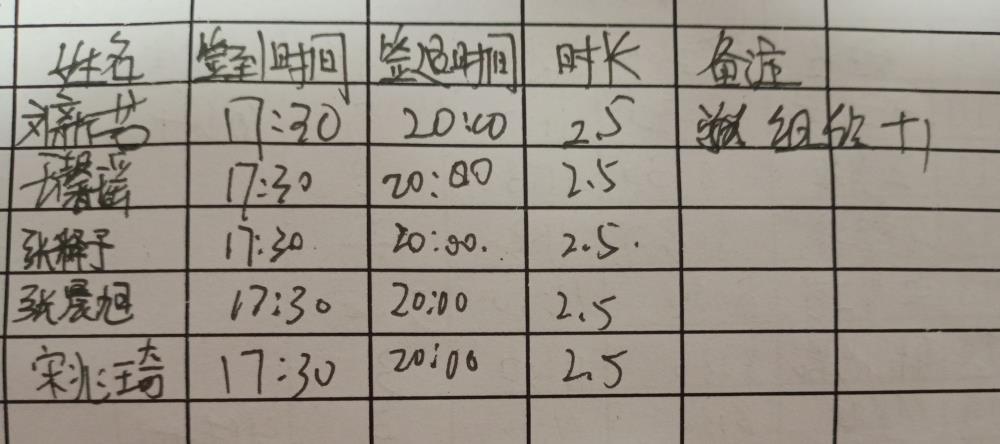 姓名 签到时间 签退时间 时长 备注
刘新芸 17:30 20:00 2.5 组织 +1
17:30 20:00 2.5
张释予 17:30 20:00. 2.5.
张晨旭 17:30 20:00 2.5
宋兆琦 17:30 20:00 2.5